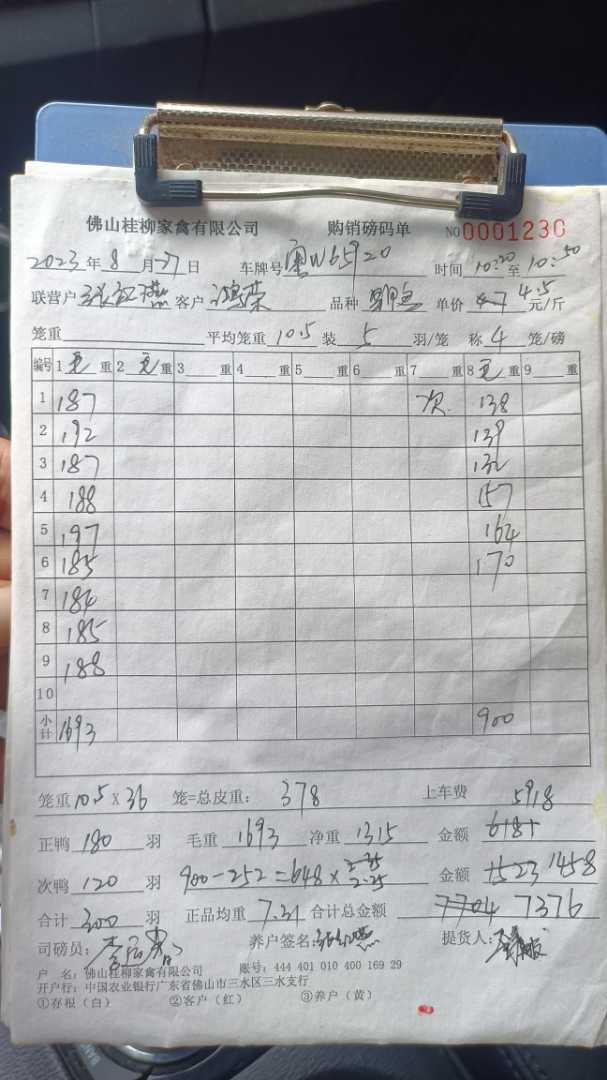 佛山桂柳家禽有限公司 购销磅码单 NO 0001230
2023年8月27日 车牌号 粤W65920 时间 10:20至10:50
联营户 客户 鸿荣 品种 单价 4.7 4.5 元/斤
笼重 平均笼重 10.5 装 5 羽/笼 称 4 笼/磅
编号 1毛重 2毛重 3 重 4 重 5 重 6 重 7 重 8毛重 9 重
1 187 次 138
2 192 139
3 187 132
4 188 157
5 197 164
6 185 170
7 184
8 185
9 188
10
小计 1693 900
笼重 10.5 X 36 笼=总皮重: 378 上车费
正鸭 180 羽 毛重 1693 净重 1315 金额 6181 5918
次鸭 120 羽 900-252=648× 2.25 金额 1523 1458
合计 300 羽 正品均重 7.31 合计总金额 7704 7376
司磅员: 养户签名: 提货人:
户 名: 佛山桂柳家禽有限公司 账号: 444 401 010 400 169 29
开户行: 中国农业银行广东省佛山市三水区三水支行
①存根（白） ②客户（红） ③养户（黄）